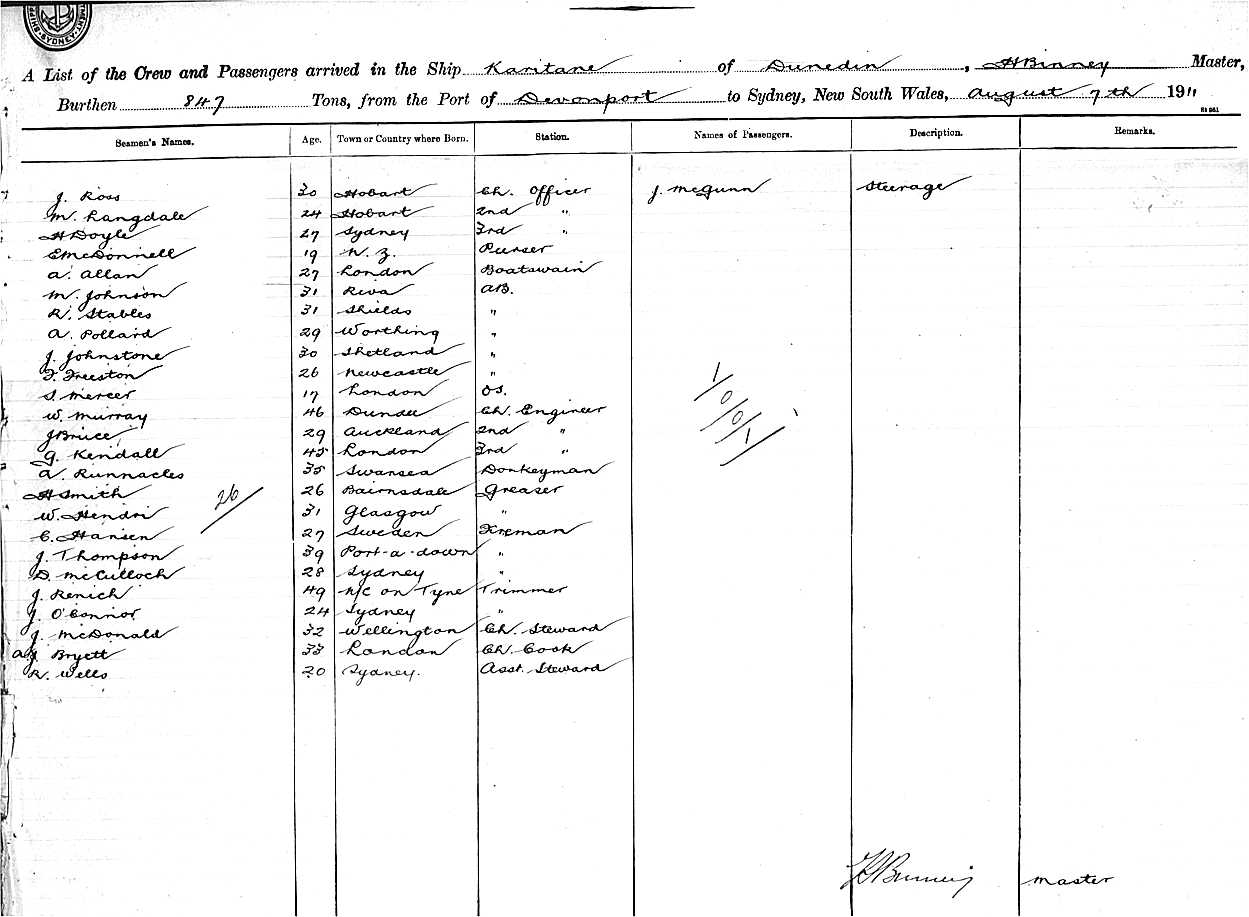 SHIPPI TMENT. SYDNEY.
A List of the Crew and Passengers arrived in the Ship Karitane of Dunedin, H Binney Master,
Burthen 847 Tons, from the Port of Devonport to Sydney, New South Wales, August 7th 1911
Seamen's Names. Age. Town or Country where Born. Station. Names of Passengers. Description. Remarks.
J. Ross 30 Hobart Ch. Officer J. McGunn Steerage
M. Langdale 24 Hobart 2nd "
H Doyle 27 Sydney 3rd "
E McDonnell 19 N. Z. Purser
A. Allan 27 London Boatswain
M. Johnson 31 Riva AB.
R. Stables 31 Shields "
A. Pollard 29 Worthing "
J. Johnstone 30 Shetland "
F. Freeston 26 Newcastle "
S. Mercer 17 London OS.
W. Murray 46 Dundee Ch. Engineer
J Bruce 29 Auckland 2nd "
G. Kendall 45 London 3rd "
A. Runnacles 35 Swansea Donkeyman
H Smith 26 Bairnsdale Greaser
W. Hendri 31 Glasgow "
C. Hansen 27 Sweden Fireman
J. Thompson 39 Port-a-down "
D. McCulloch 28 Sydney "
J. Renich 49 N/C on Tyne Trimmer
J. O'Connor 24 Sydney "
J. McDonald 32 Wellington Ch. Steward
A J Bryett 33 London Ch. Cook
R. Wells 20 Sydney. Asst. Steward
26/
1/0/0/1/
H Binney Master